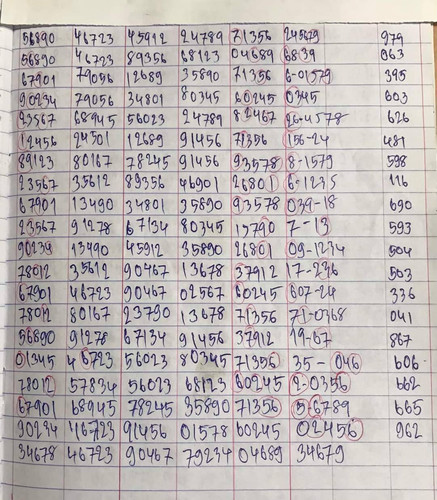 56890 46723 45912 24789 71356 245679 979
56890 46723 89356 68123 04689 6839 063
67901 79056 12689 35890 71356 6-01579 395
90234 79056 34801 80345 60245 0345 603
23567 68945 56023 24789 82467 26-4578 626
12456 24501 12689 91456 71356 156-24 481
89123 80167 78245 91456 93578 8-1579 598
23567 35612 89356 46901 26801 6-1235 116
67901 13490 34801 35890 93578 039-18 690
23567 91278 67134 80345 15790 7-13 593
90234 13490 45912 35890 26801 09-1234 504
78012 35612 90467 13678 37912 17-236 503
67901 46723 90467 02567 60245 607-24 336
78012 80167 23790 13678 71356 71-0368 041
56890 91278 67134 91456 37912 19-67 867
01345 46723 56023 80345 71356 35-046 606
78012 57834 56023 68123 60245 2-0356 662
67901 68945 78245 35890 71356 56789 665
90234 46723 91456 01578 60245 02456 962
34678 46723 90467 79234 04689 34679